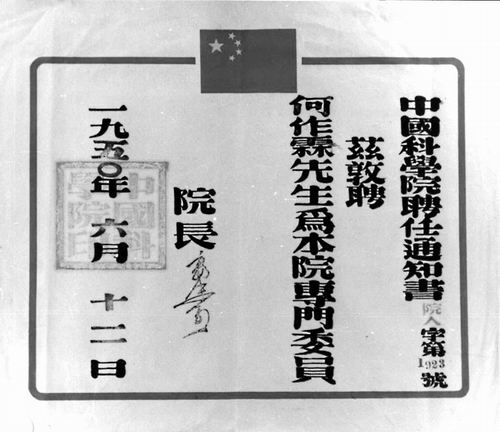 中國科學院聘任通知書
院人字第1923號
茲敦聘
何作霖先生爲本院專門委員
院長
一九五〇年 六月 十二日
中國科學院印